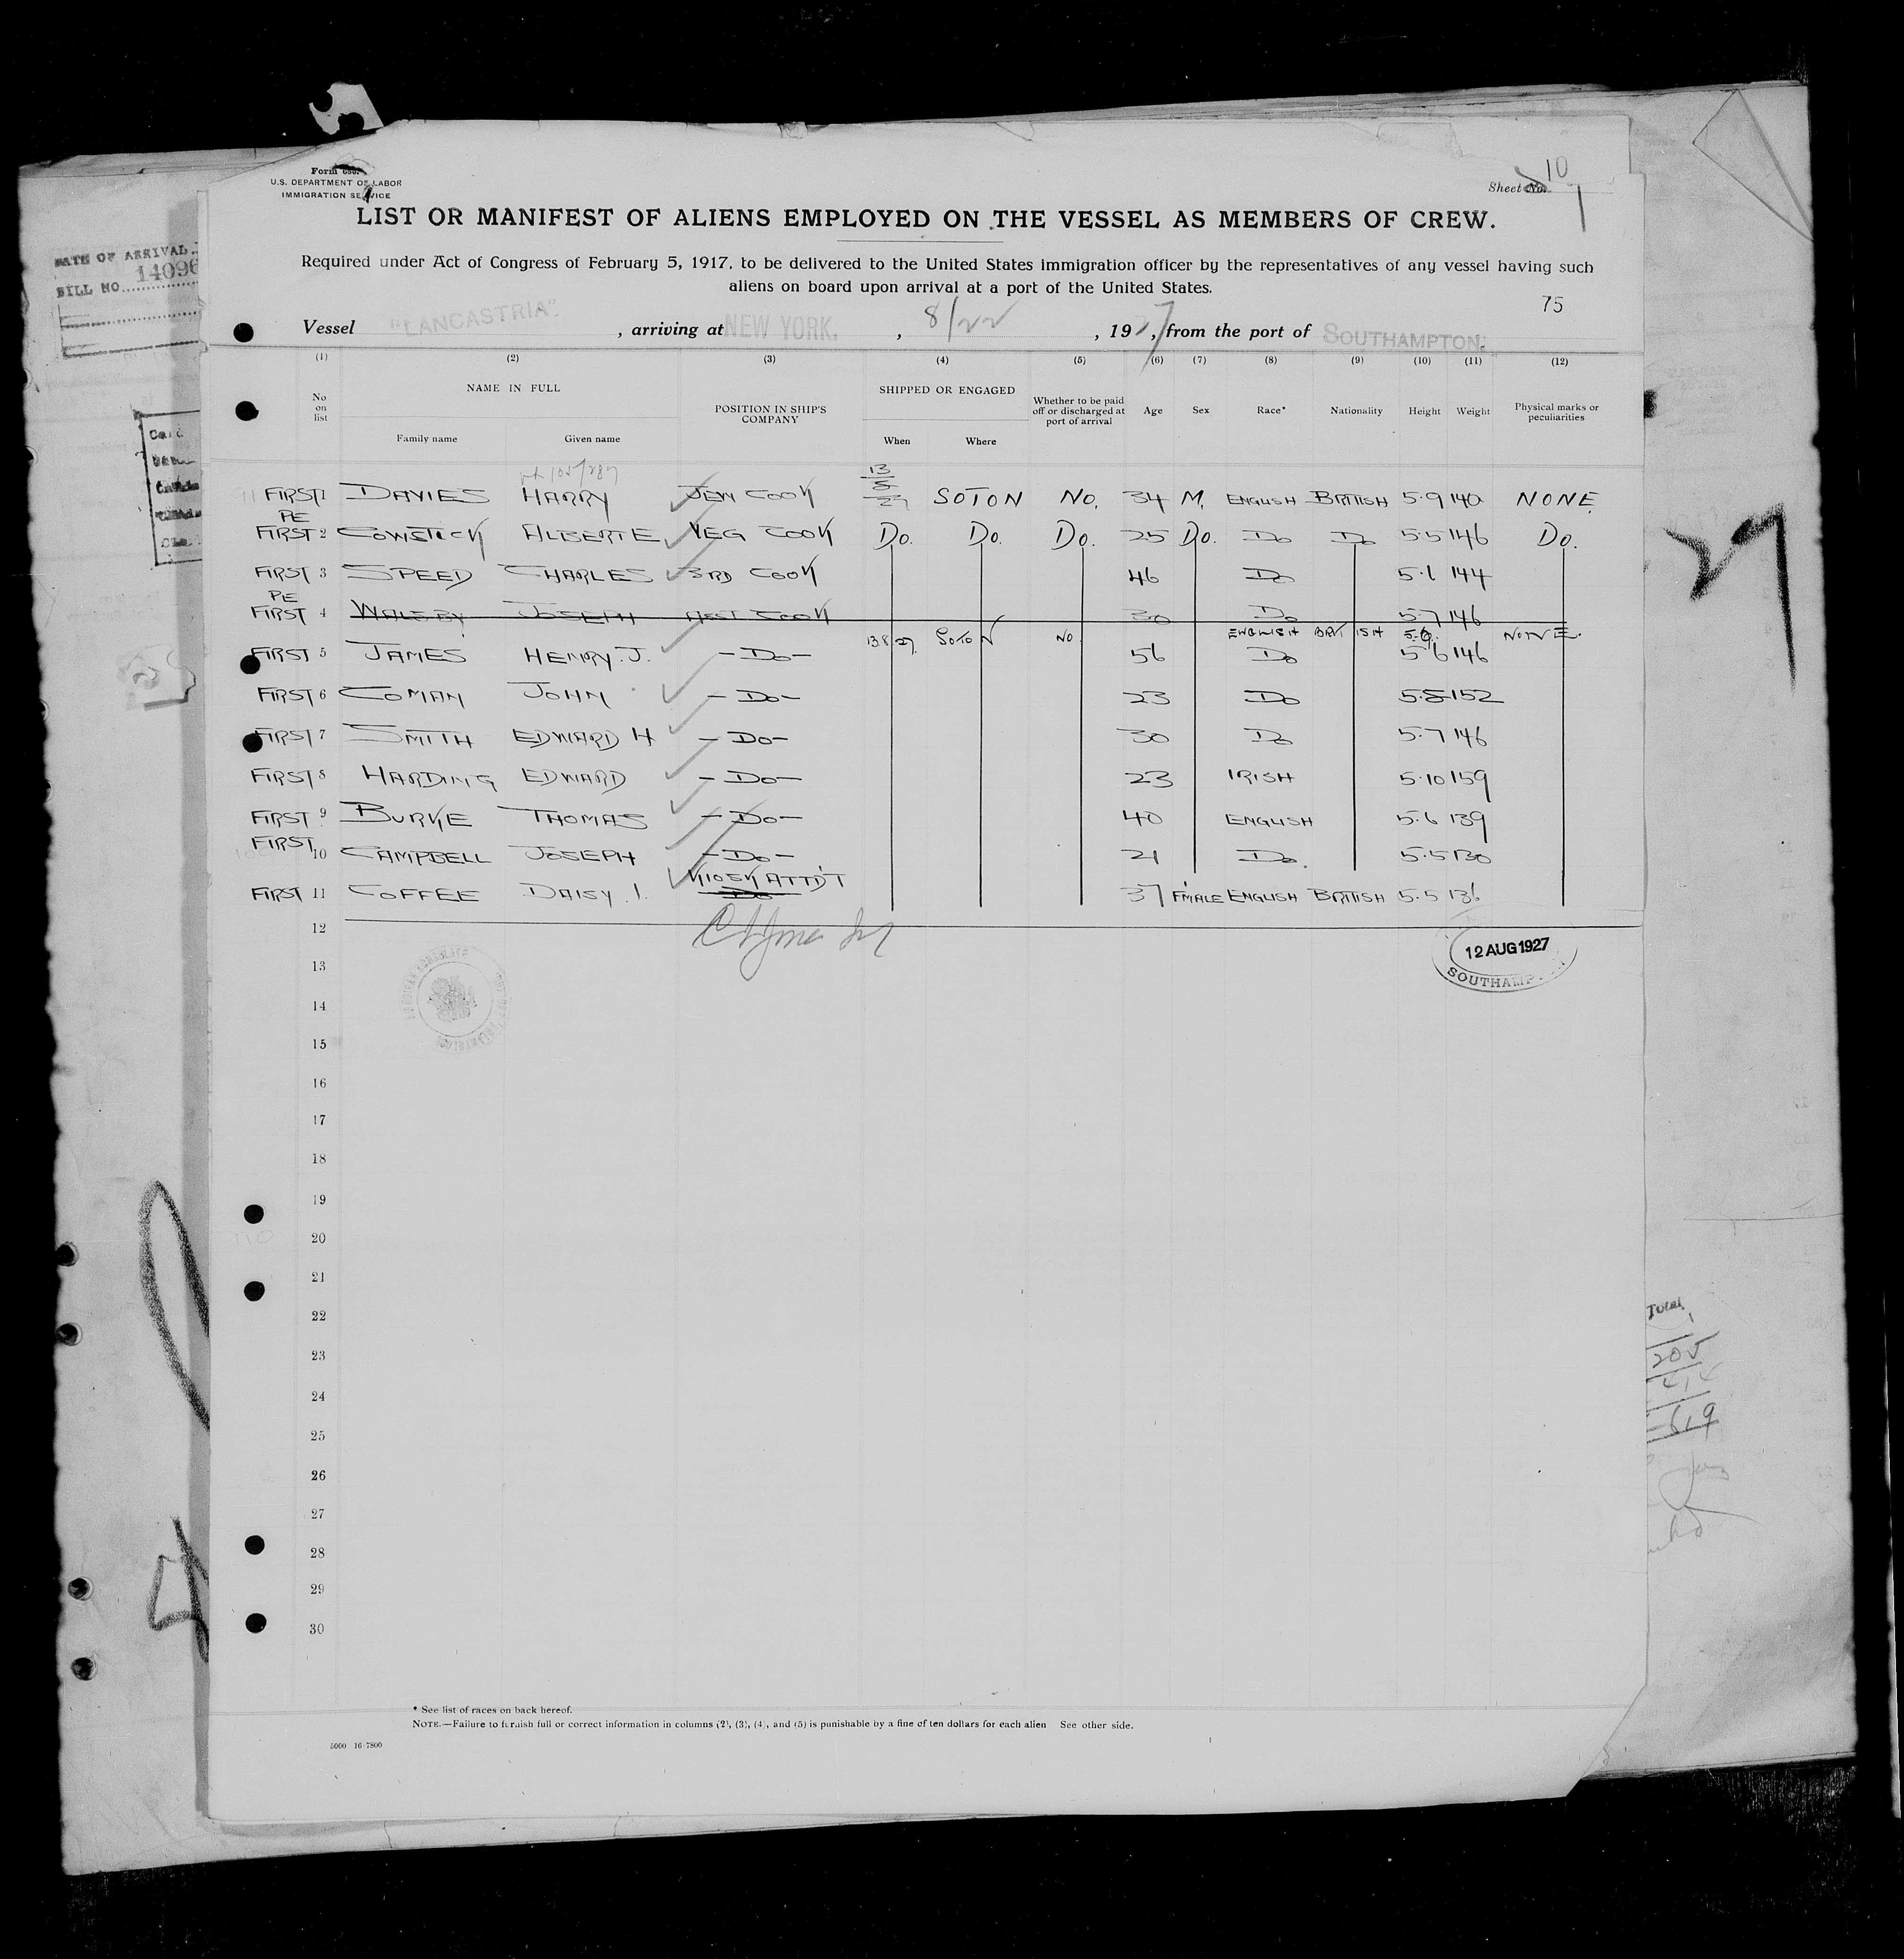 Form 680.
U.S. DEPARTMENT OF LABOR
IMMIGRATION SERVICE
Sheet No. 10
LIST OR MANIFEST OF ALIENS EMPLOYED ON THE VESSEL AS MEMBERS OF CREW.
Required under Act of Congress of February 5, 1917, to be delivered to the United States immigration officer by the representatives of any vessel having such
aliens on board upon arrival at a port of the United States.
75
DATE OF ARRIVAL
14096
BILL NO.
Vessel "LANCASTRIA", arriving at NEW YORK, 8/22, 1927, from the port of SOUTHAMPTON.
(1) (2) (3) (4) (5) (6) (7) (8) (9) (10) (11) (12)
No on list NAME IN FULL Family name Given name POSITION IN SHIP'S COMPANY SHIPPED OR ENGAGED When Where Whether to be paid off or discharged at port of arrival Age Sex Race* Nationality Height Weight Physical marks or peculiarities
FIRST 1 DAVIES HARRY JEW COOK 13/8/27 SOTON NO. 34 M. ENGLISH BRITISH 5.9 140 NONE
PE
FIRST 2 COMSTOCK ALBERT E VEG COOK Do. Do. Do. 25 Do. Do Do 5.5 146 Do.
FIRST 3 SPEED CHARLES 3RD COOK 46 Do 5.1 144
PE
FIRST 4 WALSBY JOSEPH ASST COOK 30 Do 5.7 146
13.8.27. SOTON NO ENGLISH BRITISH 5.6. NONE.
FIRST 5 JAMES HENRY. J. - Do - 56 Do 5.6 146
FIRST 6 COMAN JOHN - Do - 23 Do 5.8 152
FIRST 7 SMITH EDWARD H - Do - 30 Do 5.7 146
FIRST 8 HARDING EDWARD - Do - 23 IRISH 5.10 159
FIRST 9 BURKE THOMAS - Do - 40 ENGLISH 5.6 139
FIRST 10 CAMPBELL JOSEPH - Do - 21 Do. 5.5 130
KIOSK ATTD'T
FIRST 11 COFFEE DAISY. I. Do 37 F'MALE ENGLISH BRITISH 5.5 136
12
12 AUG 1927
SOUTHAMPTON
13
14
15
16
17
18
19
20
21
22
23
24
25
26
27
28
29
30
27
Total
205
414
619
* See list of races on back hereof.
NOTE.—Failure to furnish full or correct information in columns (2), (3), (4), and (5) is punishable by a fine of ten dollars for each alien See other side.
5000 16-7800